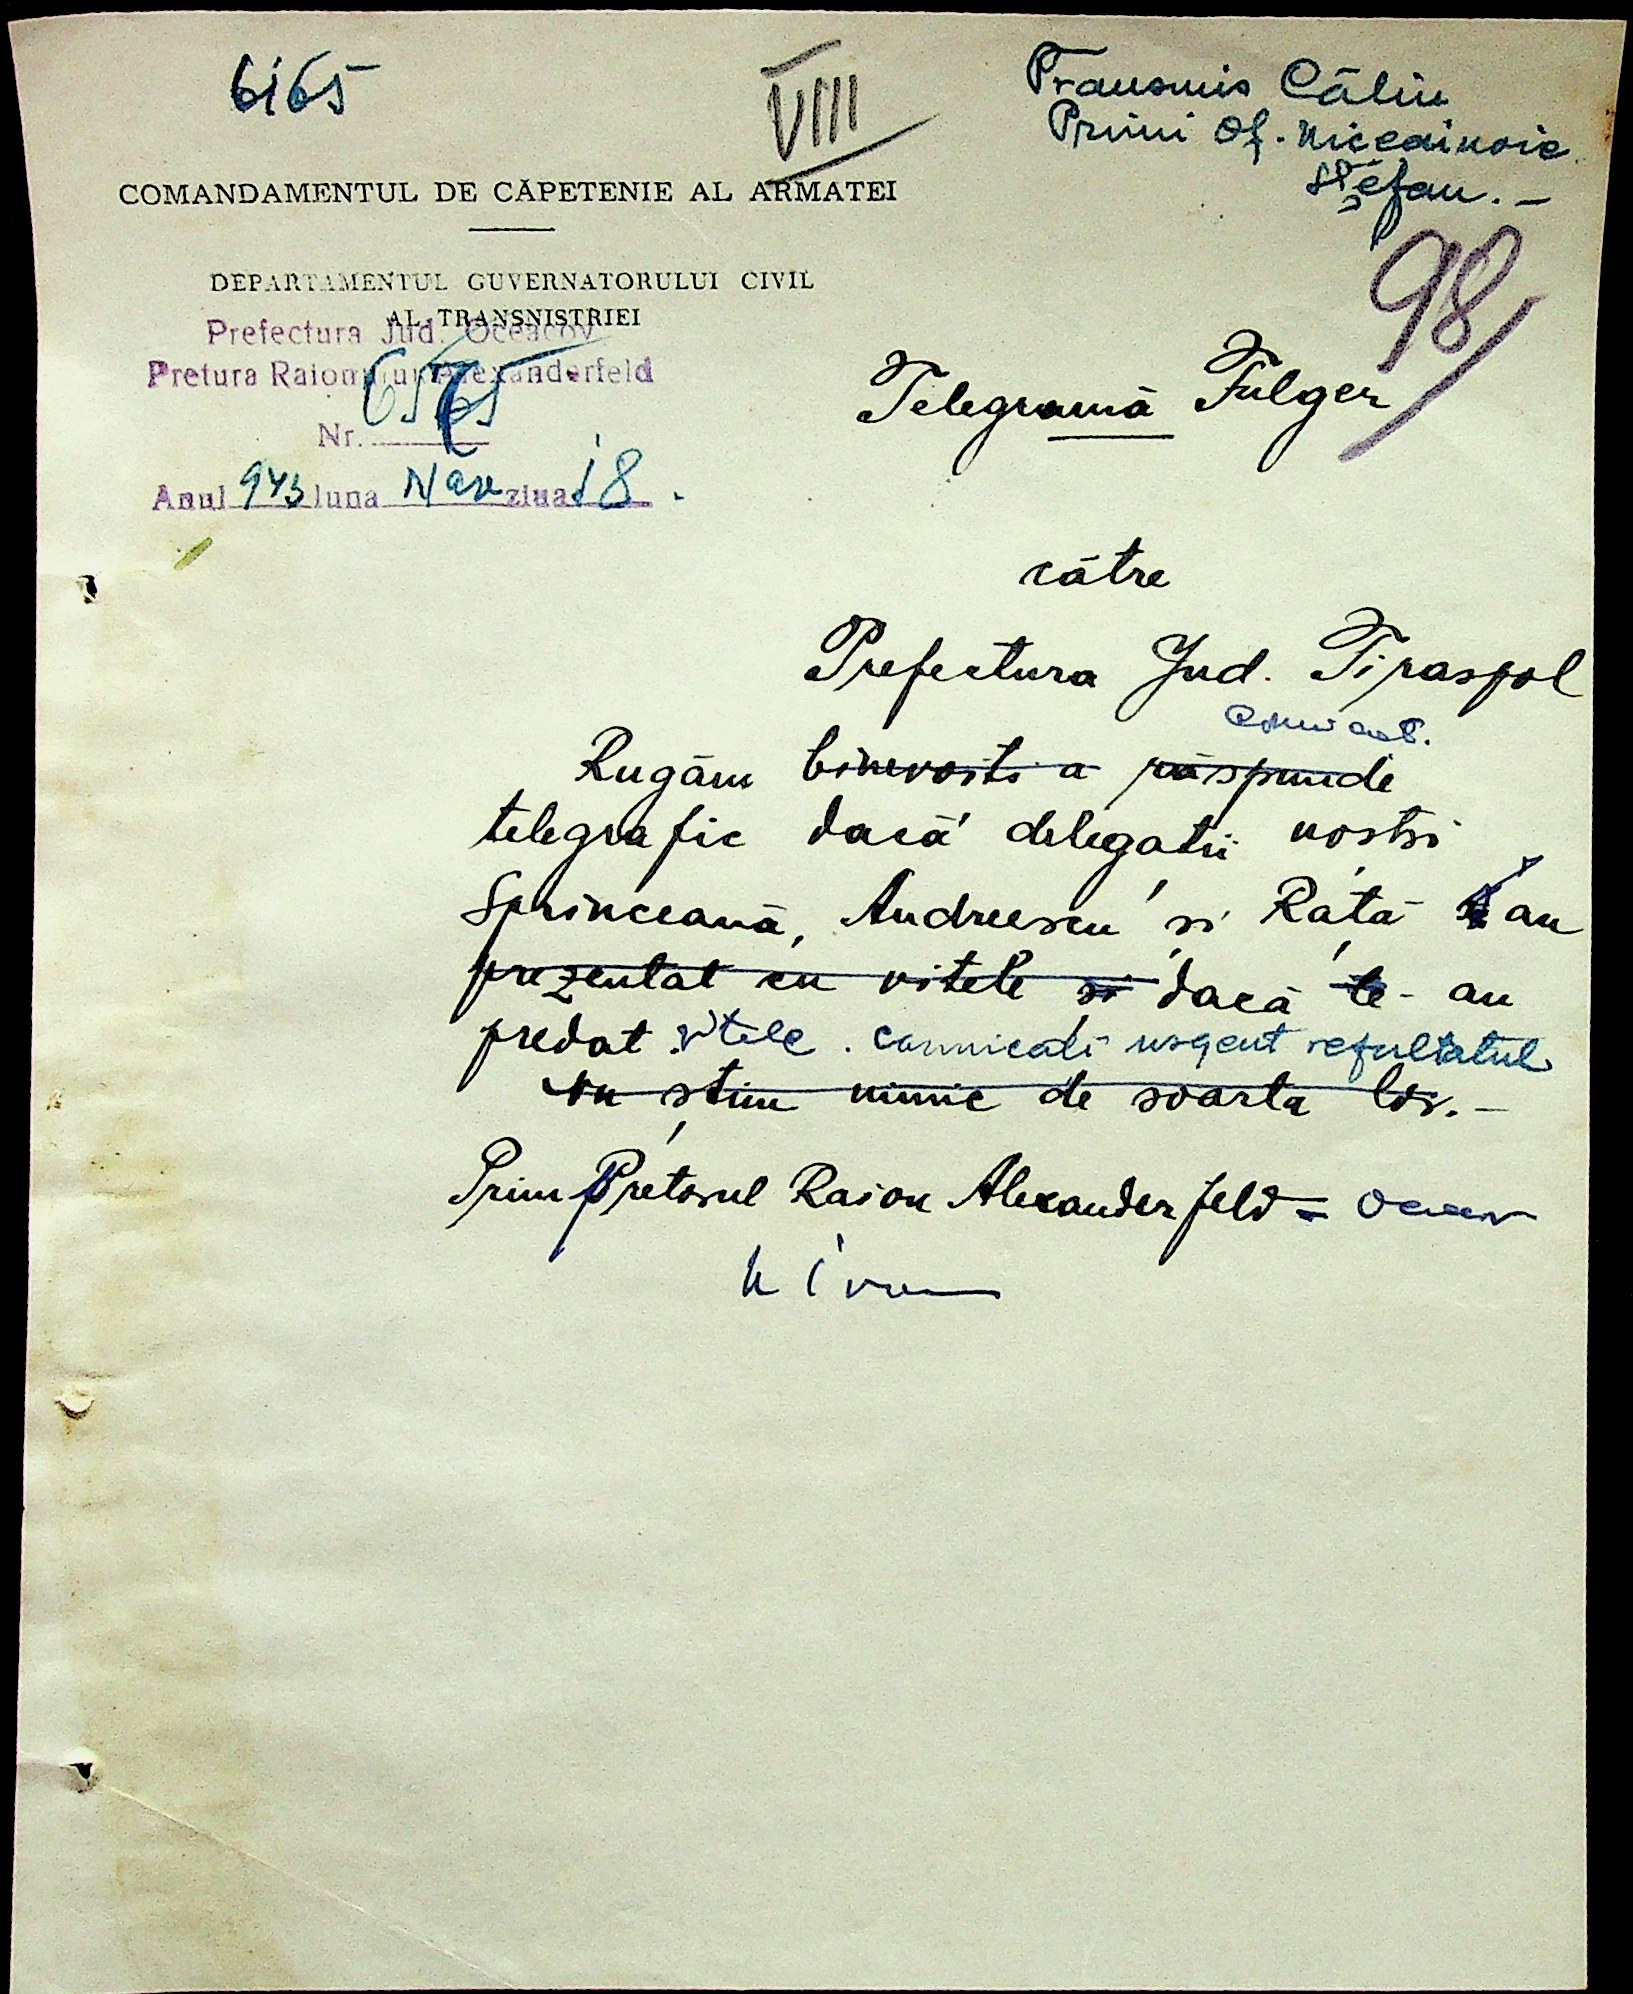 6165
VIII
Transmis Călin
Primi Of.
Ștefan. —
98
COMANDAMENTUL DE CĂPETENIE AL ARMATEI
DEPARTAMENTUL GUVERNATORULUI CIVIL
AL TRANSNISTRIEI
Prefectura Jud. Oceacov
Pretura Raionului Alexanderfeld
Nr. 6565
Anul 943 luna Noe ziua 18.
Telegramă Fulger
către
Prefectura Jud. Tiraspol
Rugăm binevoiti a răspunde
telegrafic dacă delegații noștri
Sprinceană, Andreescu și Rață au
prezentat cu vitele și dacă le-au
predat vitele. comunicați urgent rezultatul
Nu știm nimic de soarta lor. —
Prim Pretorul Raion Alexanderfeld =